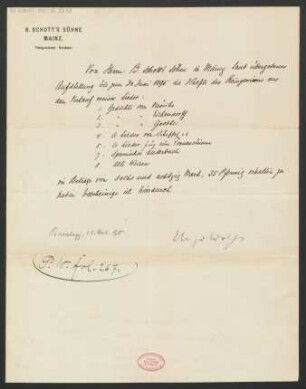 B. SCHOTT'S SÖHNE
MAINZ.
Von Herrn B. Schott's Söhne in Mainz laut übergebener
Aufstellung bis zum 30 Juni 1895 die Hälfte des Reingewinns aus
dem Verkauf meiner Lieder:
1. Gedichte von Mörike
2. " " Eichendorff
3. " " Goethe
4. 6 Lieder von Scheffel
5. 6 Lieder für eine Frauenstimme
7. Spanisches Liederbuch
8. Alte Weisen
im Betrage von sechs und achtzig Mark, 35 Pfennig erhalten zu
haben bescheinige ich hiedurch
Hugo Wolf